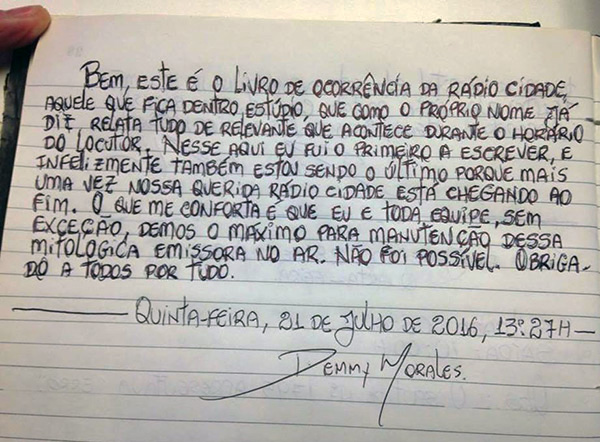 BEM, ESTE É O LIVRO DE OCORRÊNCIA DA RÁDIO CIDADE,
AQUELE QUE FICA DENTRO ESTÚDIO, QUE COMO O PRÓPRIO NOME JÁ
DIZ, RELATA TUDO DE RELEVANTE QUE ACONTECE DURANTE O HORÁRIO
DO LOCUTOR. NESSE AQUI EU FUI O PRIMEIRO A ESCREVER, E
INFELIZMENTE TAMBÉM ESTOU SENDO O ÚLTIMO PORQUE MAIS
UMA VEZ NOSSA QUERIDA RÁDIO CIDADE ESTÁ CHEGANDO AO
FIM. O QUE ME CONFORTA É QUE EU E TODA EQUIPE, SEM
EXCEÇÃO, DEMOS O MÁXIMO PARA MANUTENÇÃO DESSA
MITOLÓGICA EMISSORA NO AR. NÃO FOI POSSÍVEL. OBRIGA-
DO A TODOS POR TUDO.
QUINTA-FEIRA, 21 DE JULHO DE 2016, 13:27H
DEMMY MORALES.